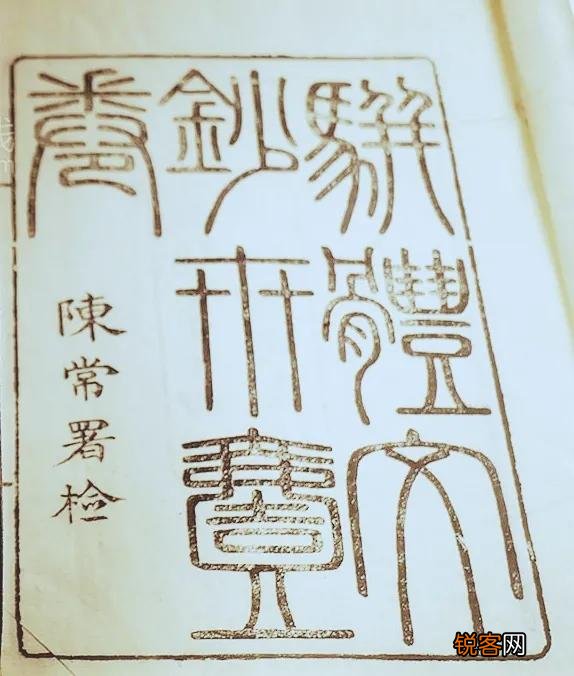 駢體文
鈔卅壹
卷
陳常署檢
锐客网